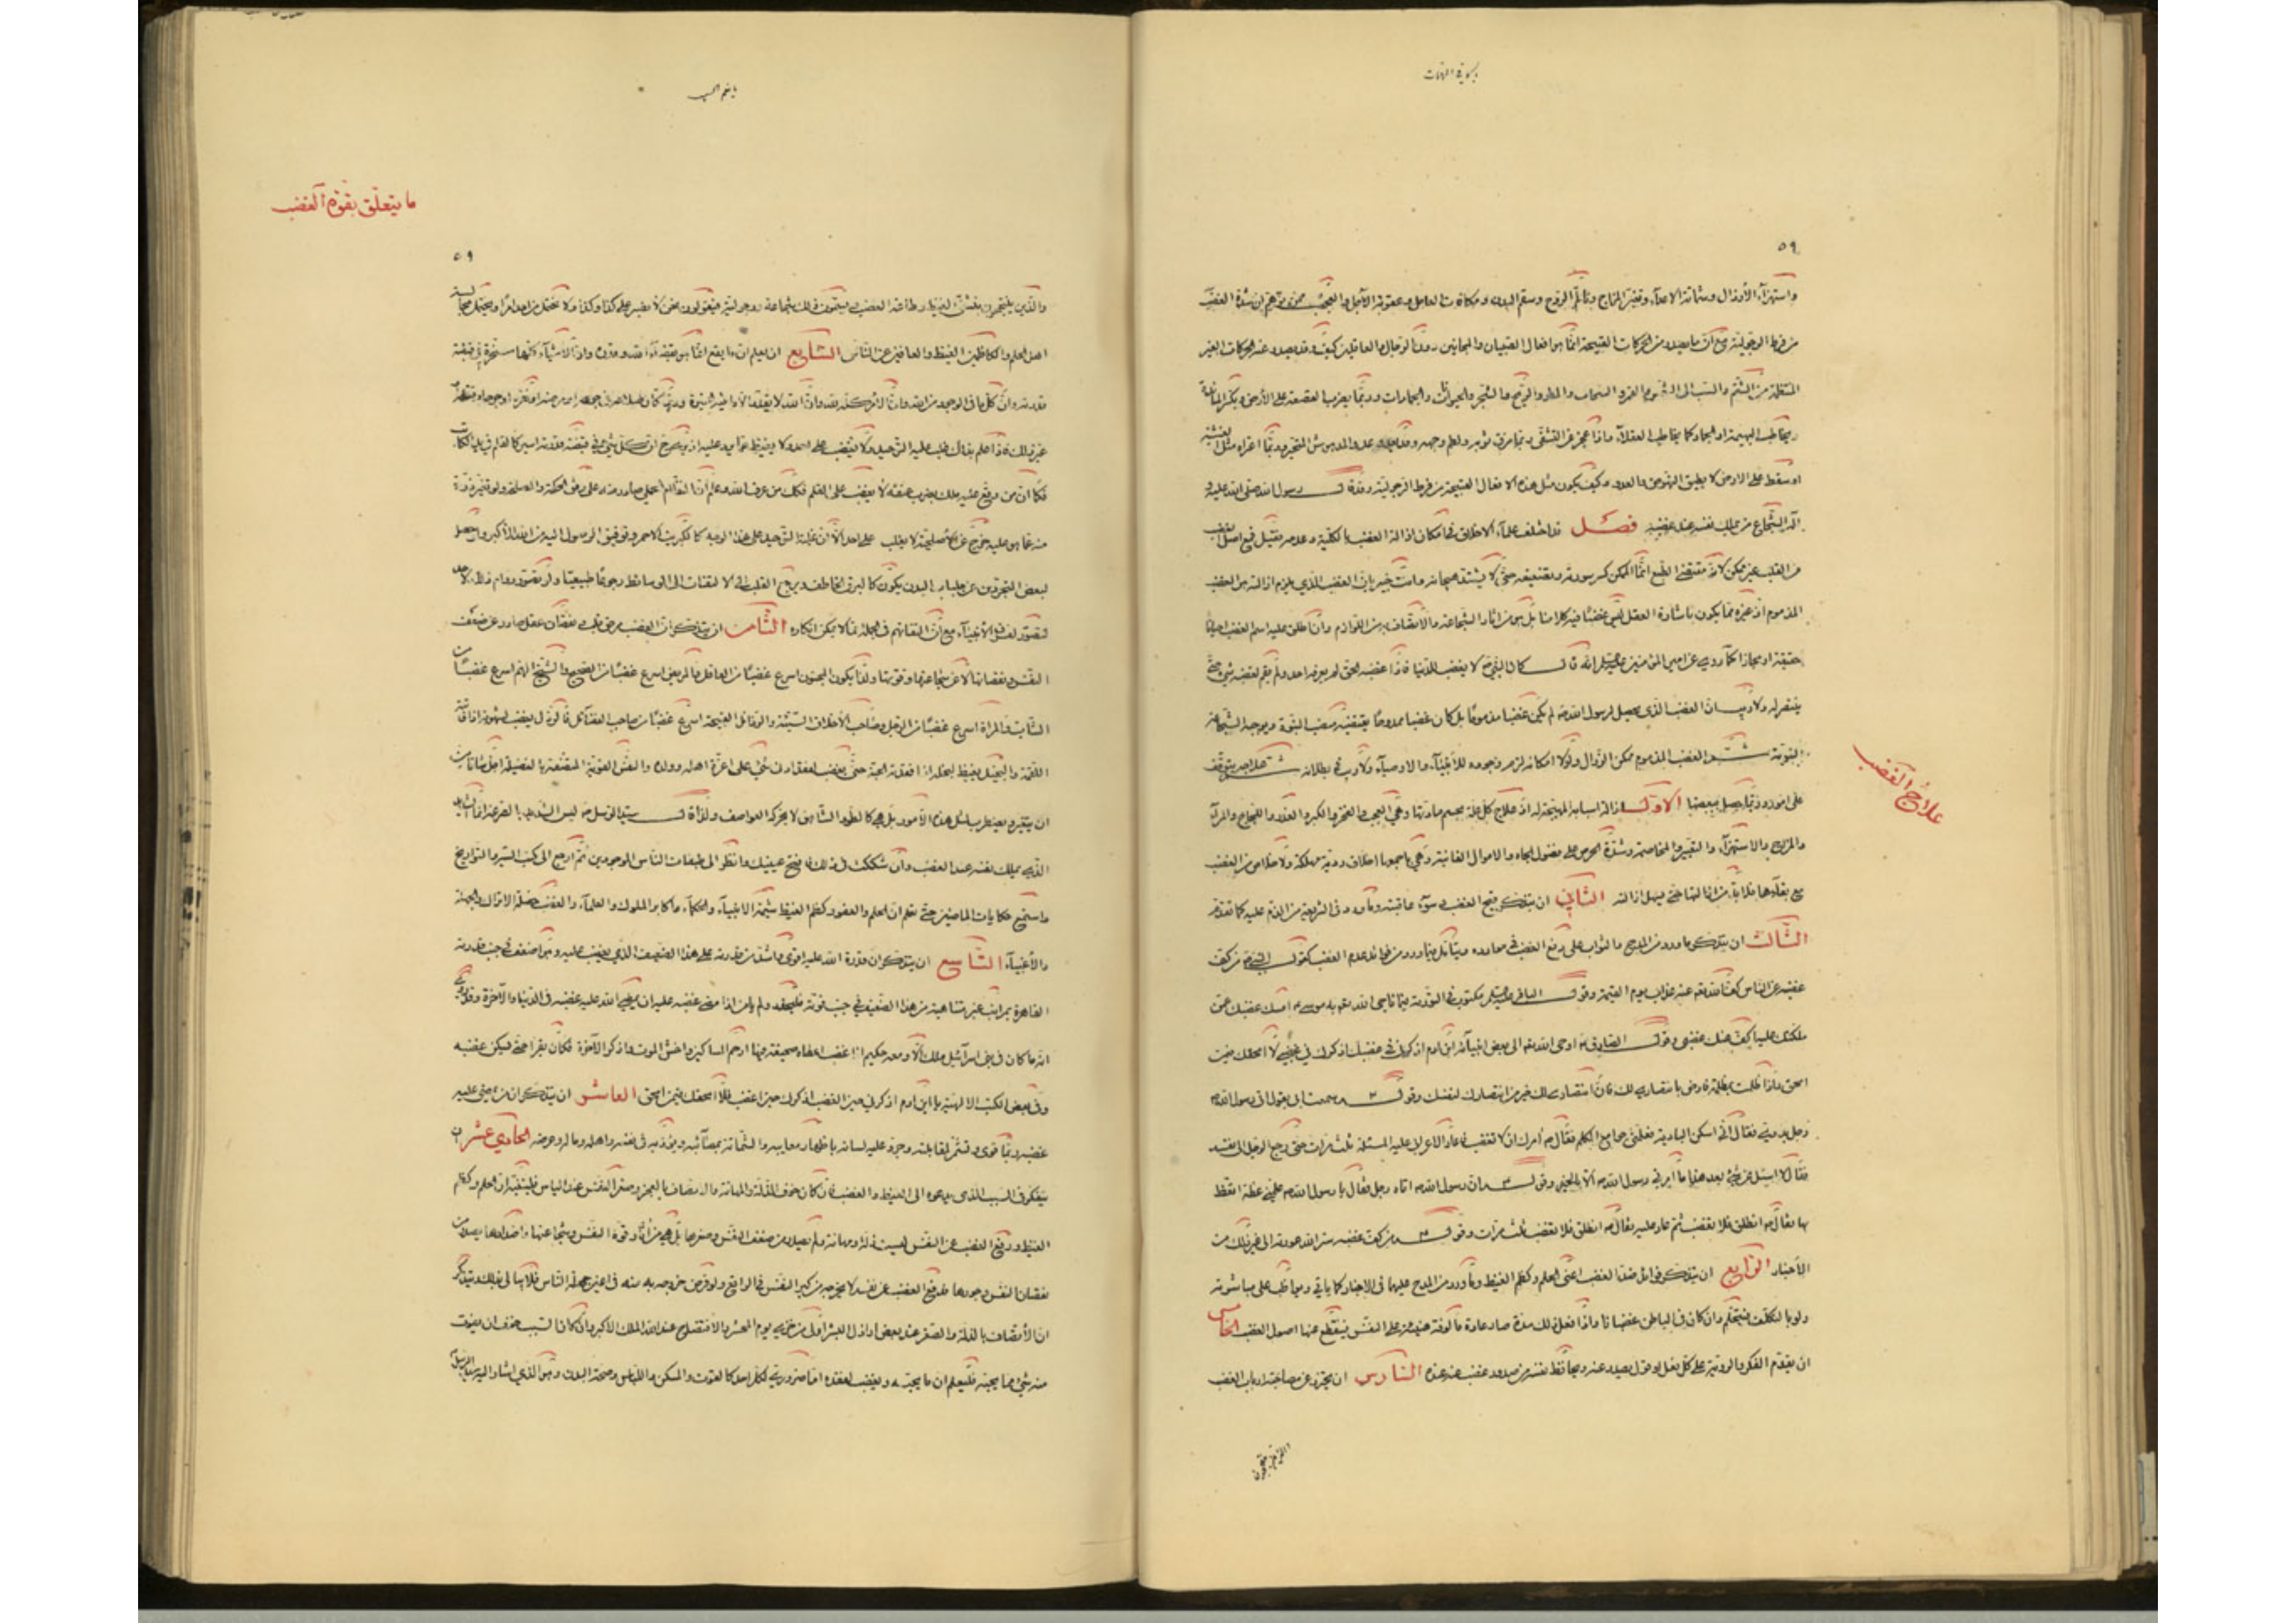 ٥٩
واستهزاء الأرذال وشماتة الاعداء وتغير المزاج وتألم الروح وسقم البدن ومكافات العاجل وعقوبة الآجل والعجب ممن توهم ان شدة الغضب
من فرط الرجولية مع ان ما يصدر من الحركات القبيحة انما هو افعال الصبيان والمجانين دون الرجال والعاقلين كيف وقد يصدر عنه الحركات الغير
المنتظمة من الشتم والسب الى الشمس والقمر والسحاب والمطر والريح والشجر والحيوانات والجمادات وربما يضرب القصعة على الأرض ويكسر المائدة
ويخاطب البهيمة او الجماد كما يخاطب العقلاء واذا عجز عن التشفى ربما مزق ثوبه ولطم وجهه وقد يعدو عدو المدهوش المتحير وربما اعتراه مثل الغشية
او سقط على الارض لا يطيق النهوض والعدو وكيف يكون مثل هذه الافعال القبيحة من فرط الرجولية وقد قال رسول الله صلى الله عليه و
آله الشجاع من يملك نفسه عند غضبه فصل قد اختلف علماء الاخلاق فى امكان ازالة الغضب بالكلية وعدمه فقيل قمع اصل الغضب
من القلب غير ممكن لانه مقتضى الطبع انما الممكن كسر سورته وتضعيفه حتى لا يشتد هيجانه وانت خبير بان الغضب الذي يلزم ازالته هو الغضب
المذموم اذ غيره مما يكون باشارة العقل ليس غضبا فيه كلامنا بل هو من اثار الشجاعة والاتصاف به من اللوازم وان اطلق عليه اسم الغضب احيانا
حقيقة او مجازا كما روي عن امير المؤمنين عليه السلام انه قال كان النبي ص لا يغضب للدنيا فاذا اغضبه الحق لم يعرفه احد ولم يقم لغضبه شيء حتى
ينتصر له ولا ريب ان الغضب الذي يحصل لرسول الله ص لم يكن غضبا مذموما بل كان غضبا ممدوحا يقتضيه منصب النبوة ويوجبه الشجاعة
النبوية ثم الغضب المذموم ممكن الزوال ولولا امكانه لزم وجوده للأنبياء والاوصياء ولا ريب في بطلانه ثم علاجه يتوقف
على امور وربما يحصل ببعضها الاول ازالة اسبابه المهيجة له اذ علاج كل علة بحسم مادتها وهي العجب والفخر والكبر والغدر واللجاج والمراء
والمزاح والاستهزاء والتعيير والمخاصمة وشدة الحرص على فضول الجاه والاموال الفانية وهي باجمعها اخلاق ردية مهلكة ولا خلاص من الغضب
مع بقائها فلا بد من ازالتها حتى يسهل ازالته الثاني ان يتذكر قبح الغضب وسوء عاقبته وما ورد فى الشريعة من الذم عليه كما تقدم
الثالث ان يتذكر ما ورد من المدح والثواب على دفع الغضب فى موارده ويتأمل فيما ورد من فوائد عدم الغضب كقول النبي ص من كف
غضبه عن الناس كف الله عنه عذاب يوم القيمة وقول الباقر عليه السلم مكتوب فى التورية فيما ناجى الله به موسى ع امسك غضبك عمن
ملكتك عليه اكف عنك غضبى وقول الصادق ع اوحى الله الى بعض انبيائه يا بن ادم اذكرني فى غضبك اذكرك في غضبي لا امحقك فيمن
امحق واذا ظلمت بمظلمة فارض بانتصارى لك فان انتصارى لك خير من انتصارك لنفسك وقوله ع سمعت ابى يقول اتى رسول الله ص
رجل بدوي فقال اني اسكن البادية فعلمني جوامع الكلم فقال ص آمرك ان لا تغضب فاعاد الاعرابى عليه المسئلة ثلث مرات حتى رجع الرجل الى نفسه
فقال لا اسئل عن شيء بعد هذا ما امرني رسول الله ص الا بالخير وقوله ع ان رسول الله ص اتاه رجل فقال يا رسول الله ص علمني عظة اتعظ
بها فقال ص انطلق فلا تغضب ثم عاد عليه فقال ص انطلق فلا تغضب ثلث مرات وقوله ع من كف غضبه ستر الله عورته الى غير ذلك من
الأخبار الرابع ان يتذكر فوائد ضد الغضب اعنى الحلم وكظم الغيظ وما ورد من المدح عليهما فى الاخبار كما ياتي ويواظب على مباشرته
ولو بالتكلف فيتحلم وان كان فى الباطن غضبانا واذا فعل ذلك مدة صار عادة مألوفة هنيئة على النفس فينقطع عنها اصول الغضب الخامس
ان يقدم الفكر والروية على كل فعل او قول يصدر عنه ويحافظ نفسه من صدور غضب عنه السادس ان يحترز عن مصاحبة ارباب الغضب
علاج الغضب
ما يتعلق بقوة الغضب
٥٩
والذين يتبجحون بتشفى الغيظ وطاعة الغضب ويسمون ذلك شجاعة ورجولية فيقولون نحن لا نصبر على كذا وكذا ولا نحتمل من احد امرا ويختار مجالسة
اهل الحلم والكاظمين الغيظ والعافين عن الناس السابع ان يعلم ان ما يقع انما هو بقضاء الله وقدره وان الاشياء كلها مسخرة في قبضة
قدرته وان كل ما فى الوجود من الله وان الامر كله لله وان الله لا يقدر له الا ما فيه الخيرة وربما كان صلاحه فى جوعه او مرضه او فقره او جرحه او قتله او
غير ذلك فاذا علم بذلك غلب عليه التوحيد ولا يغضب على احد ولا يغيظ عما يرد عليه اذ يرى ح ان كل شيء فى قبضة قدرته اسير كالقلم في يد الكاتب
فكما ان من وقع عليه ملك بضرب عنقه لا يغضب على القلم فكذا من عرف الله وعلم ان النظام الجملي صادر منه على وفق الحكمة والمصلحة ولو تغيرت ذرة
منه عما هو عليه خرج عن الأصلحية لا يغضب على احد الا ان غلبة التوحيد على هذا الوجه كالكبريت الاحمر وتوفيق الوصول اليه من الله الأكبر ولو حصل
لبعض المتجردين عن جلباب البدن يكون كالبرق الخاطف ويرجع القلب الى الالتفات الى الوسائط رجوعا طبيعيا ولو تصور دوام ذلك لاحد
لتصور لفرق الأنبياء مع ان التفاتهم فى الجملة مما لا يمكن انكاره الثامن ان يتذكر ان الغضب مرض قلب ونقصان عقل صادر عن ضعف
النفس ونقصانها لا عن شجاعتها وقوتها ولذا يكون المجنون اسرع غضبا من العاقل والمريض اسرع غضبا من الصحيح والشيخ الهرم اسرع غضبا من
الشاب والمرأة اسرع غضبا من الرجل وصاحب الأخلاق السيئة والرذائل القبيحة اسرع غضبا من صاحب الفضائل فالرذل يغضب لشهوته اذا فاتته
اللقمة والبخيل يغيظ لبخله اذا فقد الحبة حتى يغضب لفقد ادنى شيء على اعزة اهله وولده والنفس القوية المتصفة بالفضيلة اجل شانا من
ان يتغير ويضطرب لمثل هذه الامور بل هي كالطود الشامخ لا يحركه العواصف ولذا قال سيد الرسل ص ليس الشديد بالصرعة انما الشديد
الذي يملك نفسه عند الغضب وان شككت فى ذلك فافتح عينيك وانظر الى طبقات الناس الموجودين ثم ارجع الى كتب السير والتواريخ
واستمع حكايات الماضين حتى تعلم ان الحلم والعفو وكظم الغيظ شيمة الانبياء والحكماء واكابر الملوك والعلماء والغضب خصلة الاتراك والجهلة
والأغبياء التاسع ان يتذكر ان قدرة الله عليه اقوى واشد من قدرته على هذا الضعيف الذي يغضب عليه وهو اضعف في جنب قدرته
القاهرة بمراتب غير متناهية من هذا الضعيف في جنب قوته فليحذر ولم يأمن اذا امضى غضبه عليه ان يمضي الله عليه غضبه فى الدنيا والآخرة وقد روي
انه ما كان فى بنى اسرائيل ملك الا ومعه حكيم اذا غضب اعطاه صحيفة فيها ارحم المساكين واخش الموت واذكر الآخرة فكان يقرأها حتى يسكن غضبه
وفى بعض الكتب الالهية يا ابن ادم اذكرني حين تغضب اذكرك حين اغضب فلا امحقك فيمن امحق العاشر ان يتذكر ان من يمضى عليه
غضبه ربما قوى وتشمر لمقابلته وجرد عليه لسانه باظهار معايبه والشماتة بمصائبه ويؤذيه فى نفسه واهله وماله وعرضه الحادي عشر ان
يتفكر فى السبب الذى يدعوه الى الغيظ والغضب فان كان خوف الذلة والمهانة والاتصاف بالعجز وصغر النفس عند الناس فليتنبه ان الحلم وكظم
الغيظ ودفع الغضب عن النفس ليست ذلة ومهانة ولم يصدر من ضعف النفس وصغرها بل هي من اثار قوة النفس وشجاعتها واضدادها يصدر من
نقصان النفس وخورها فدفع الغضب عن نفسه لا يخرجه من كبر النفس فى الواقع ولو فرض خروجه به منه فى اعين جهلة الناس فلا يبالى بذلك ويتذكر
ان الاتصاف بالذلة والصغر عند بعض اراذل البشر اولى من خزي يوم المحشر والافتضاح عند الله الملك الاكبر وان كان السبب خوف ان يفوت
منه شيء مما يحبه فليعلم ان ما يحبه ويغضب لفقده اما ضروري لكل احد كالقوت والمسكن واللباس وصحة البدن وهو الذي اشار اليه سيد الرسل